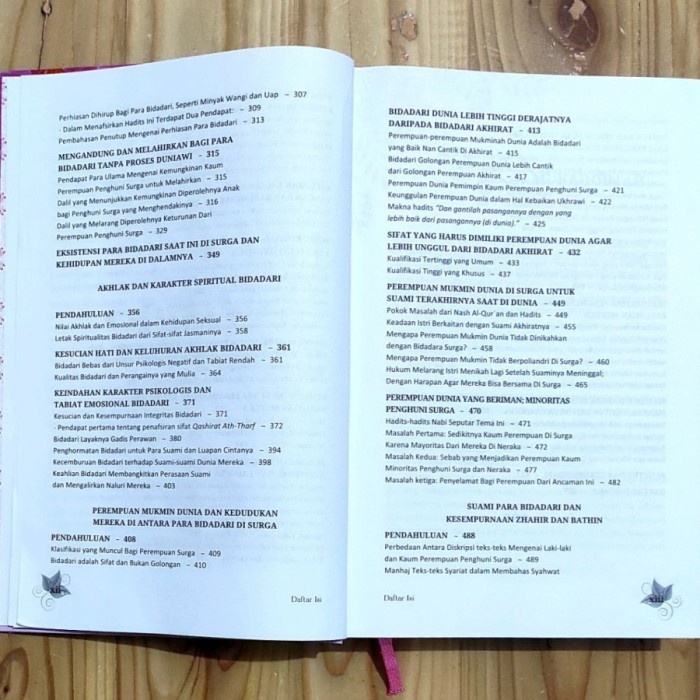 Perhiasan Dihirup Bagi Para Bidadari, Seperti Minyak Wangi dan Uap – 307
- Dalam Menafsirkan Hadits Ini Terdapat Dua Pendapat: – 309
Pembahasan Penutup Mengenai Perhiasan Para Bidadari – 313
MENGANDUNG DAN MELAHIRKAN BAGI PARA
BIDADARI TANPA PROSES DUNIAWI – 315
Pendapat Para Ulama Mengenai Kemungkinan Kaum
Perempuan Penghuni Surga untuk Melahirkan – 315
Dalil yang Menunjukkan Kemungkinan Diperolehnya Anak
bagi Penghuni Surga yang Menghendakinya – 316
Dalil yang Melarang Diperolehnya Keturunan Dari
Perempuan Penghuni Surga – 329
EKSISTENSI PARA BIDADARI SAAT INI DI SURGA DAN
KEHIDUPAN MEREKA DI DALAMNYA – 349
AKHLAK DAN KARAKTER SPIRITUAL BIDADARI
PENDAHULUAN – 356
Nilai Akhlak dan Emosional dalam Kehidupan Seksual – 356
Letak Spiritualitas Bidadari dari Sifat-sifat Jasmaninya – 358
KESUCIAN HATI DAN KELUHURAN AKHLAK BIDADARI – 361
Bidadari Bebas dari Unsur Psikologis Negatif dan Tabiat Rendah – 361
Kualitas Bidadari dan Perangainya yang Mulia – 364
KEINDAHAN KARAKTER PSIKOLOGIS DAN
TABIAT EMOSIONAL BIDADARI – 371
Kesucian dan Kesempurnaan Integritas Bidadari – 371
- Pendapat pertama tentang penafsiran sifat Qashirat Ath-Tharf – 372
Bidadari Layaknya Gadis Perawan – 380
Penghormatan Bidadari untuk Para Suami dan Luapan Cintanya – 394
Kecemburuan Bidadari terhadap Suami-suami Dunia Mereka – 398
Keahlian Bidadari Membangkitkan Perasaan Suami
dan Mengalirkan Naluri Mereka – 403
PEREMPUAN MUKMIN DUNIA DAN KEDUDUKAN
MEREKA DI ANTARA PARA BIDADARI DI SURGA
PENDAHULUAN – 408
Klasifikasi yang Muncul Bagi Perempuan Surga – 409
Bidadari adalah Sifat dan Bukan Golongan – 410
xii
Daftar Isi
BIDADARI DUNIA LEBIH TINGGI DERAJATNYA
DARIPADA BIDADARI AKHIRAT – 413
Perempuan-perempuan Mukminah Dunia Adalah Bidadari
yang Baik Nan Cantik Di Akhirat – 415
Bidadari Golongan Perempuan Dunia Lebih Cantik
dari Golongan Perempuan Akhirat – 417
Perempuan Dunia Pemimpin Kaum Perempuan Penghuni Surga – 421
Keunggulan Perempuan Dunia dalam Hal Kebaikan Ukhrawi – 422
Makna hadits "Dan gantilah pasangannya dengan yang
lebih baik dari pasangannya (di dunia)." – 425
SIFAT YANG HARUS DIMILIKI PEREMPUAN DUNIA AGAR
LEBIH UNGGUL DARI BIDADARI AKHIRAT – 432
Kualifikasi Tertinggi yang Umum – 433
Kualifikasi Tinggi yang Khusus – 437
PEREMPUAN MUKMIN DUNIA DI SURGA UNTUK
SUAMI TERAKHIRNYA SAAT DI DUNIA – 449
Pokok Masalah dari Nash Al-Qur`an dan Hadits – 449
Keadaan Istri Berkaitan dengan Suami Akhiratnya – 455
Mengapa Perempuan Mukmin Dunia Tidak Dinikahkan
dengan Bidadara Surga? – 458
Mengapa Perempuan Mukmin Tidak Berpoliandri Di Surga? – 460
Hukum Melarang Istri Menikah Lagi Setelah Suaminya Meninggal;
Dengan Harapan Agar Mereka Bisa Bersama Di Surga – 465
PEREMPUAN DUNIA YANG BERIMAN; MINORITAS
PENGHUNI SURGA – 470
Hadits-hadits Nabi Seputar Tema Ini – 471
Masalah Pertama: Sedikitnya Kaum Perempuan Di Surga
Karena Mayoritas Dari Mereka Di Neraka – 472
Masalah Kedua: Sebab yang Menjadikan Perempuan Kaum
Minoritas Penghuni Surga dan Neraka – 477
Masalah ketiga: Penyelamat Bagi Perempuan Dari Ancaman Ini – 482
SUAMI PARA BIDADARI DAN
KESEMPURNAAN ZHAHIR DAN BATHIN
PENDAHULUAN – 488
Perbedaan Antara Diskripsi teks-teks Mengenai Laki-laki
dan Kaum Perempuan Penghuni Surga – 489
Manhaj Teks-teks Syariat dalam Membahas Syahwat
Daftar Isi
xiii